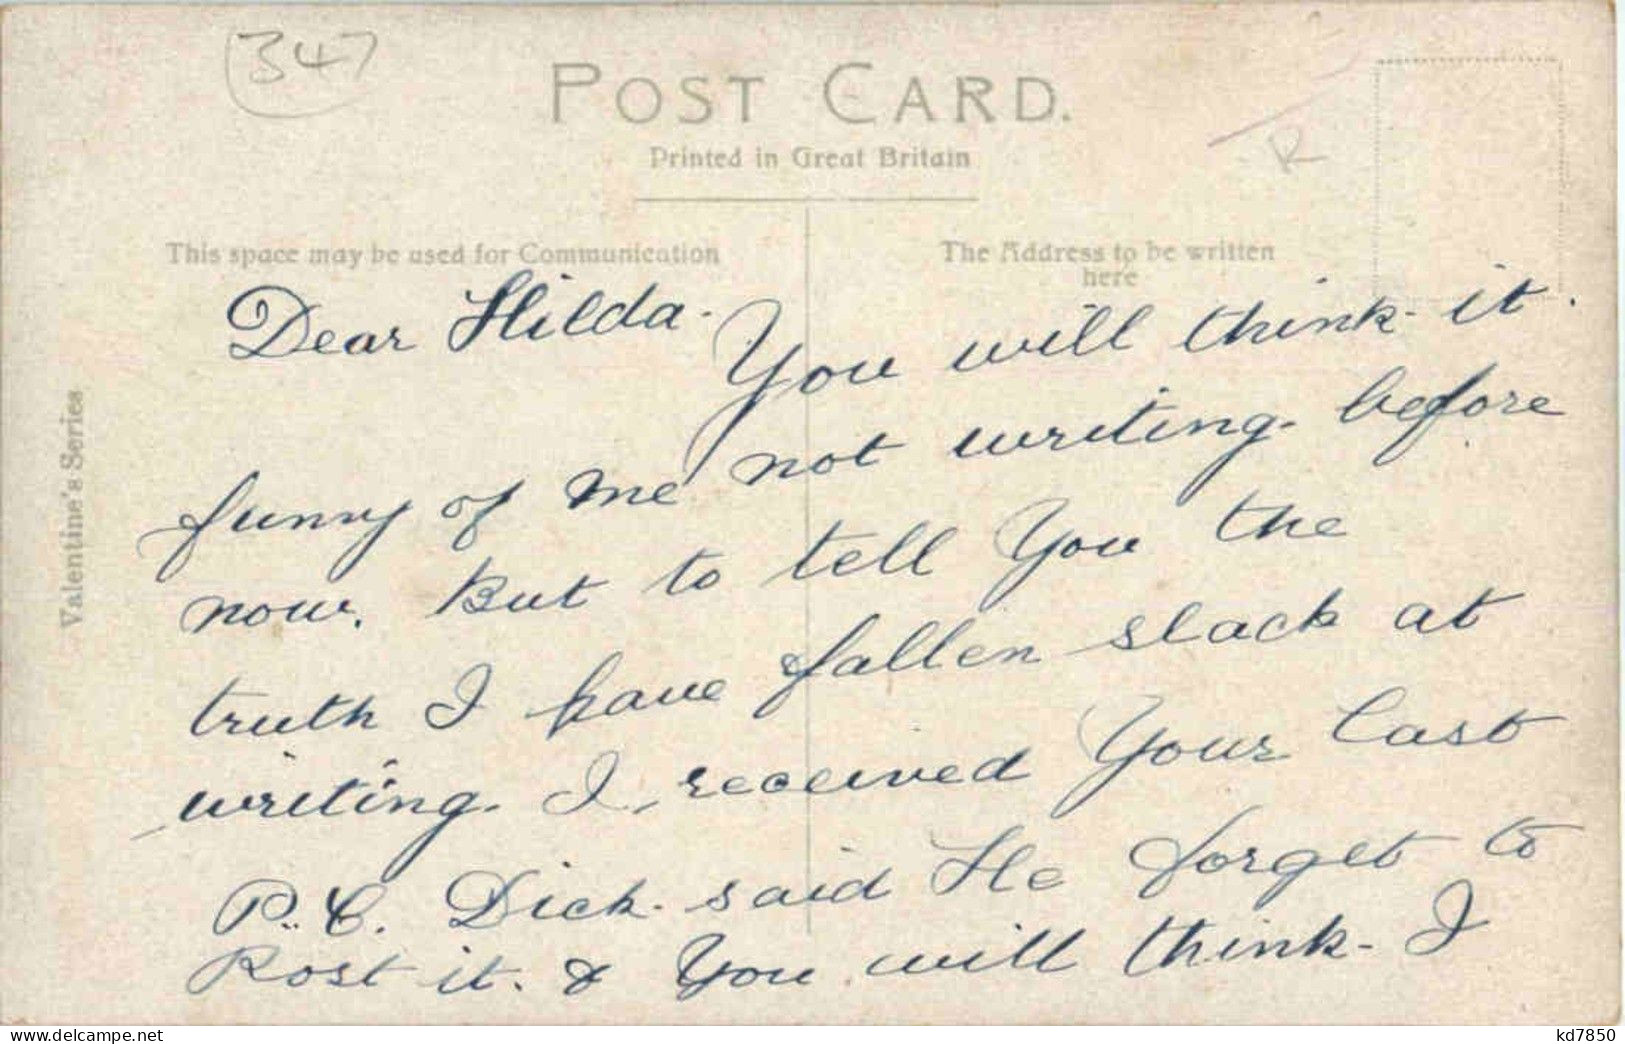 347
POST CARD.
Printed in Great Britain
R
This space may be used for Communication
The Address to be written
here
Valentine's Series
Dear Hilda. You will think it
funny of me not writing before
now. But to tell You the
truth I have fallen slack at
writing. I received Your last
P.C. Dick said He forget to
Post it. & You will think I
www.delcampe.net
kd7850